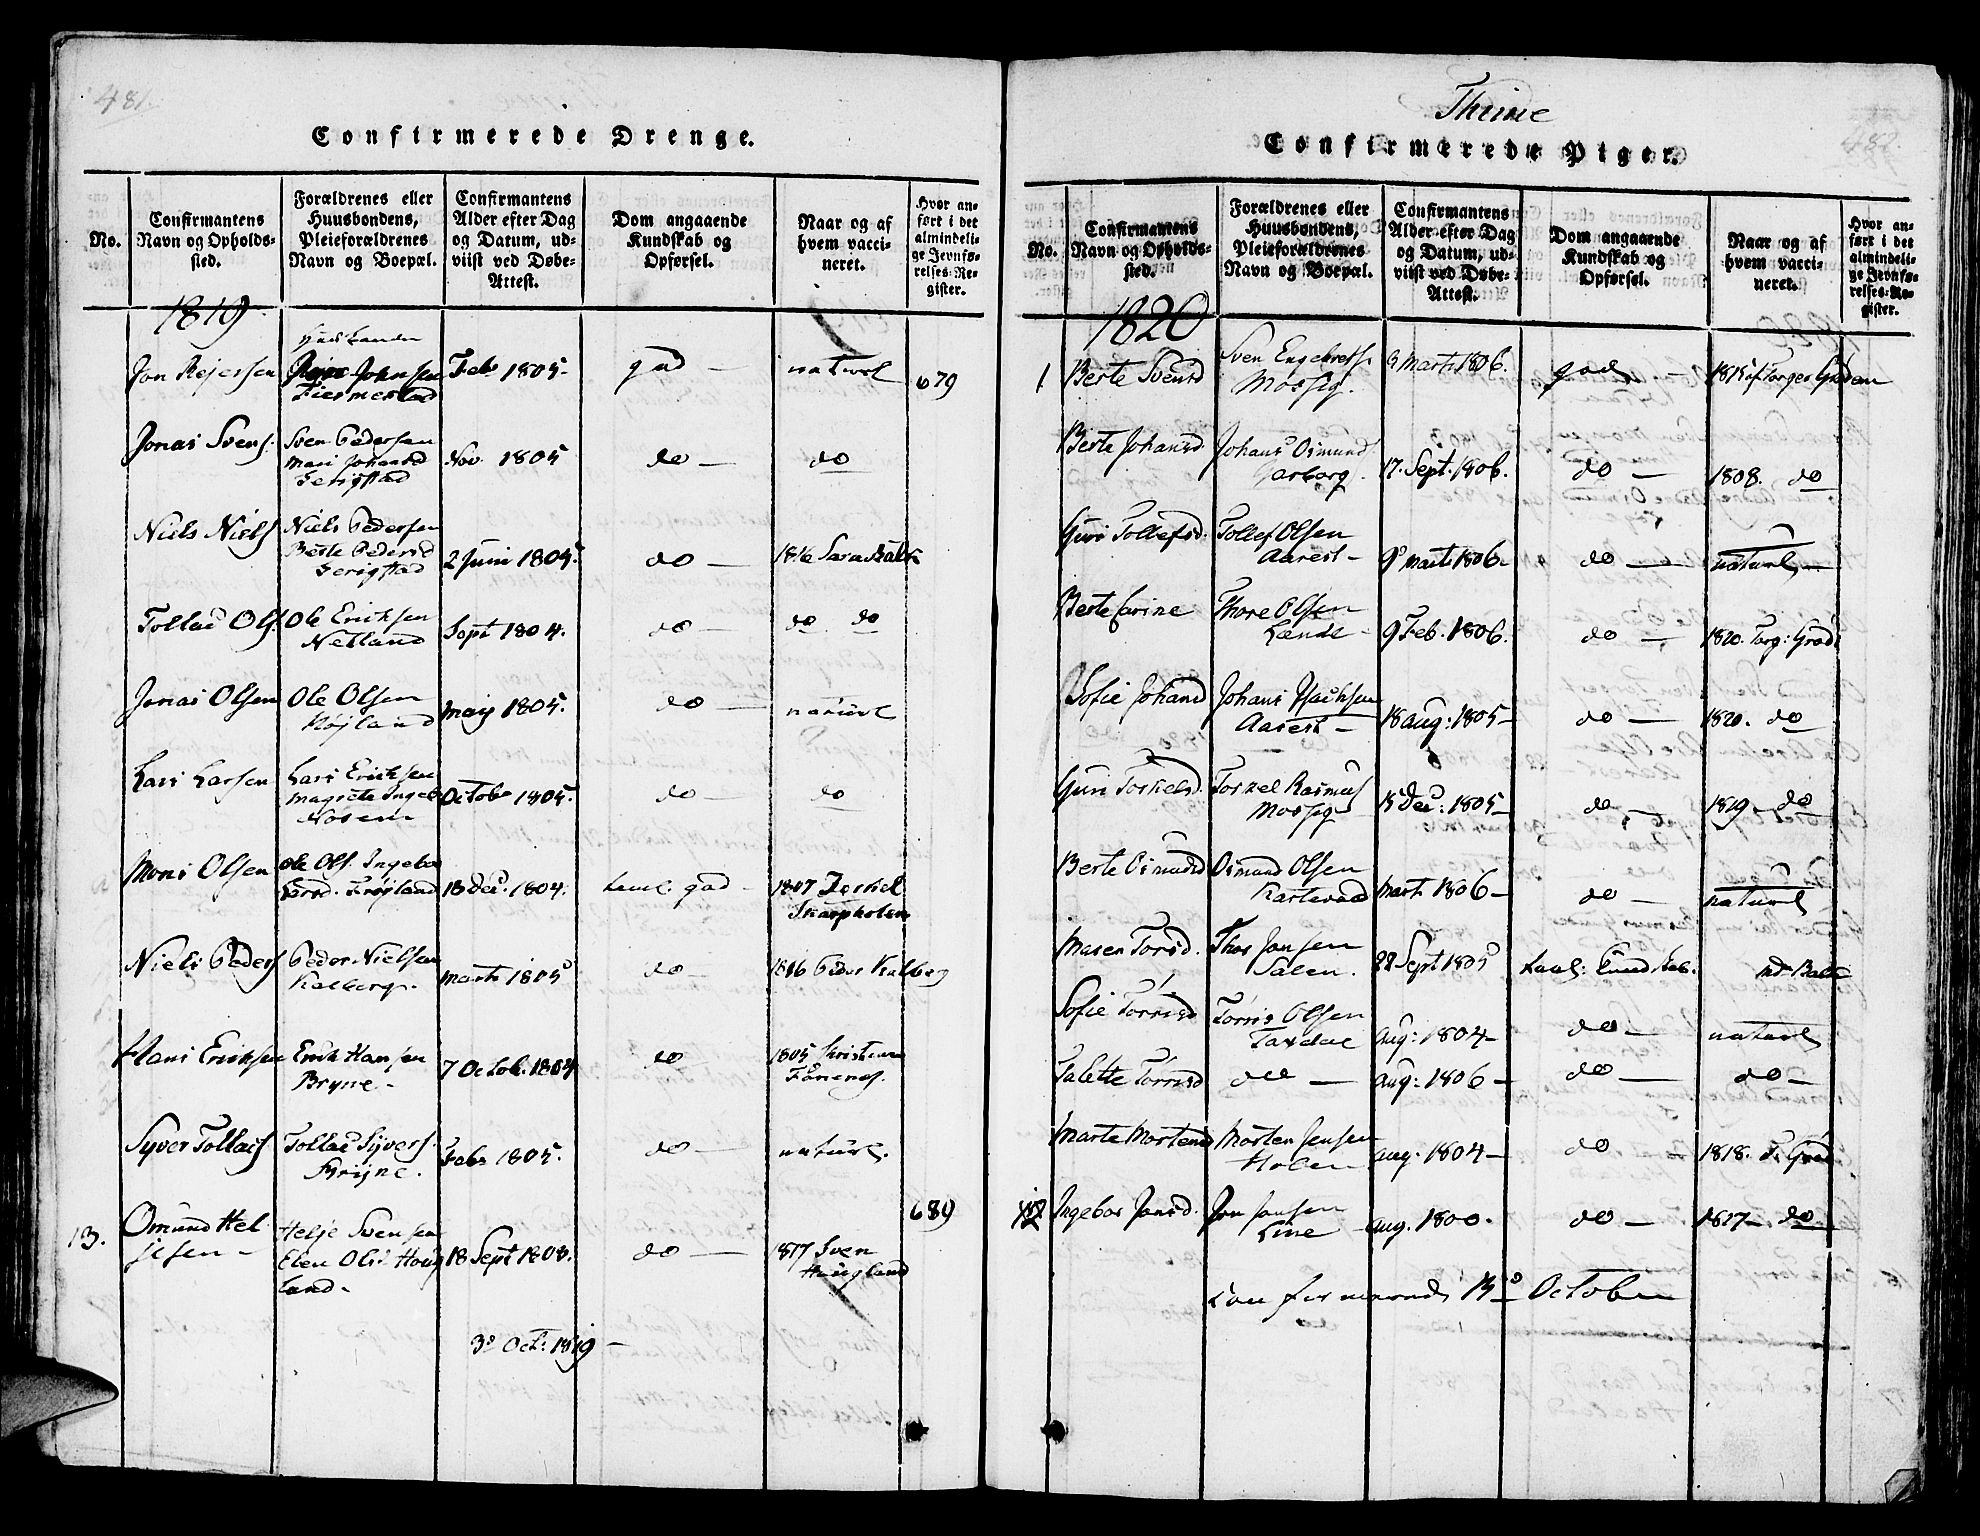 481.
Confirmerede Drenge.
No.
Confirmantens Navn og Opholdssted.
Forældrenes eller Huusbondens, Pleieforældrenes Navn og Boepæl.
Confirmantens Alder efter Dag og Datum, udviist ved Døbe-Attest.
Dom angaaende Kundskab og Opførsel.
Naar og af hvem vaccineret.
Hvor anført i det almindelige Jevnførelses-Register.
1819
Jon Rejersen Johnsen Feb 1805 god naturl 679
Jonas Svens. Sven Pedersen Nov. 1805 do do
Mari Johansd
Serigstad
Niels Niels Niels Pedersen 2 Juni 1805 do 1816
Berte Pedersd
Serigstad
Tollac Ols. Ole Eriksen Sept 1804. do do do
Netland
Jonas Olsen Ole Olsen Maij 1805. do naturl
Højland
Lars Larsen Lars Eriksen Octob 1805. do do
Magrete Ingeb
Nosem
Mons Olsen Ole Ols. Ingebor 13 Dec. 1804. god 1807 Torkel
Larsd. Frøjland
Niels Peders Peder Nielsen Marts 1805 do 1816 Peder Kalberg
Kalberg.
Hans Eriksen Erik Hansen 7 Octob. 1804 do 1805 Christian
Bryne
Syver Tollacs Tollac Syvers. Feb. 1805. do naturl.
Bryne.
689
13. Omund Hel Helje Svensen 18 Sept 1803. do 1817 Sven
jesen Elen Olsd Houg Hougland
land
3d Oct: 1819
Thime
482.
Confirmerede Piger.
No.
Confirmantens Navn og Opholdssted.
Forældrenes eller Huusbondens, Pleieforældrenes Navn og Boepæl.
Confirmantens Alder efter Dag og Datum, udviist ved Døbe-Attest.
Dom angaaende Kundskab og Opførsel.
Naar og af hvem vaccineret.
Hvor anført i det almindelige Jevnførelses-Register.
1820
1 Berte Svensd Sven Engebrets 3 Marts 1806. god Torger
Mossig.
Berte Johansd Johans Osmund 17. Sept. 1806. do 1808. do
Guri Tollefsd. Tollef Olsen 9 Marts 1806 do naturl
Aarest
Berte Carine Thore Olsen 9 Feb. 1806. do 1820. Torg: Grød
Lende
Sofie Johansd Johans Isachsen 18 Aug: 1805 do 1820. do
Aarest
Guri Torkelsd. Torkel Rasmus 15 Dec: 1805 do 1819 do
Mossig
Berte Osmunsd Osmund Olsen Marts 1806 do naturl
Maren Torsd. Thor Jonsen 28 Sept 1805
Salen.
Sofie Tørrisd Tørris Olsen Aug: 1804 do naturl
Taxdal
Talette Tørrisd do Aug: 1806 do do
Marte Mortensd Morten Jensen Aug. 1804 do 1818. T. Grød
Holen
12 Ingebor Jonsd. Jon Jonsen Aug. 1800. do 1817 do
Line
Confirmerede 15d October